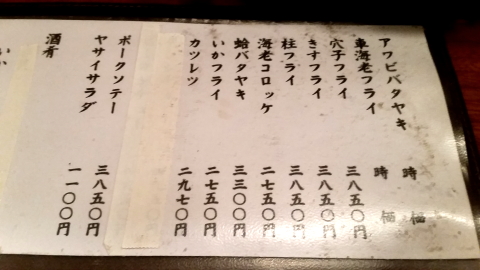 アワビバタヤキ 時価
車海老フライ 時価
穴子フライ 三八五〇円
きすフライ 三八五〇円
柱フライ 三八五〇円
海老コロッケ 二七五〇円
蛤バタヤキ 三三〇〇円
いかフライ 二七五〇円
カツレツ 二九七〇円
ポークソテー 三八五〇円
ヤサイサラダ 一一〇〇円
酒肴